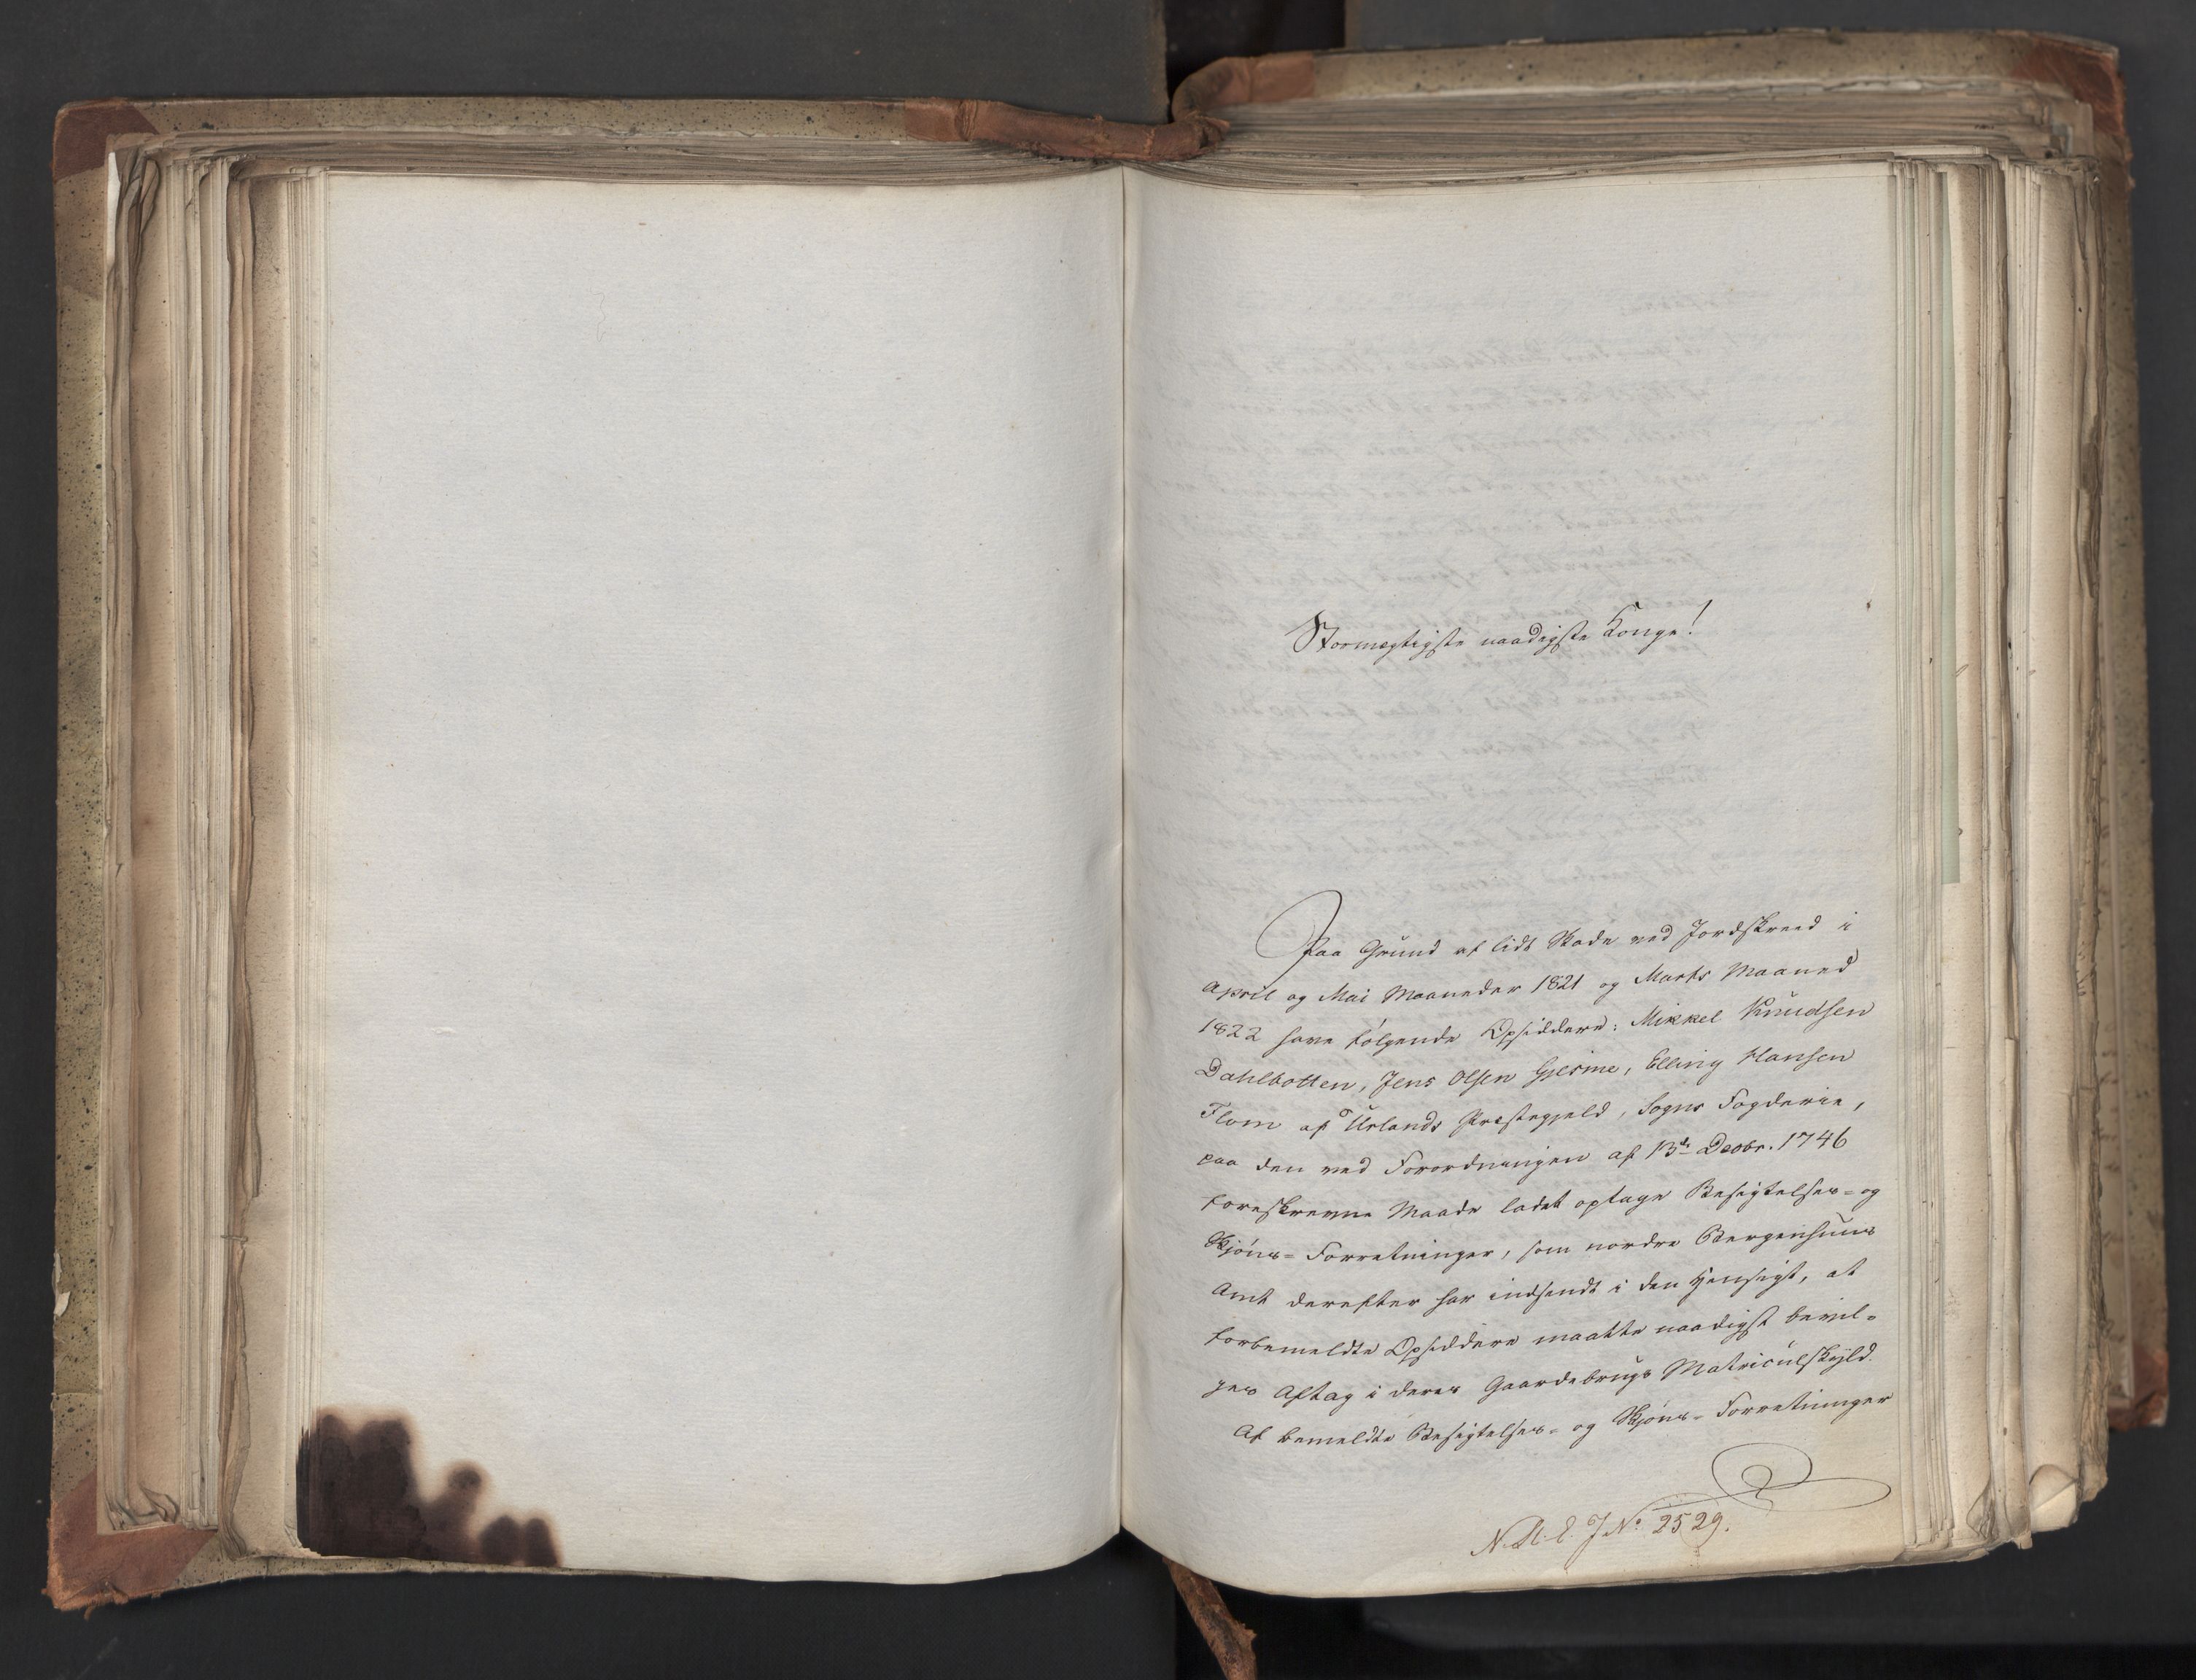 Stormegtigste naadigste Konge!
Paa Grund af lidt Skade ved Jordskreed i
April og Mai Maaneder 1821 og Marts Maaned
1822 have følgende Opsiddere: Mikkel Knudsen
Dahlbotten, Jens Olsen Gjesme, Elling Hansen
Flom af Urlands Præstegjeld, Sogns Fogderie,
paa den ved Forordningen af 13de Decbr. 1746
foreskrevne Maade ladet optage Besigtelses- og
Skjøns-Forretninger, som nordre Bergenhuus
Amt derefter har indsendt i den Hensigt, at
forbemeldte Opsiddere maatte naadigst bevil-
ges Aftag i deres Gaardebrugs Matriculskyld.
Af bemeldte Besigtelses- og Skjøns-Forretninger
J No. 2529.